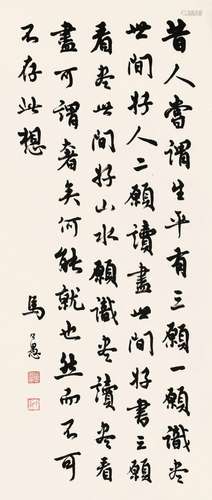 昔人嘗謂生平有三願一願識盡
世间好人二願讀盡世间好書三願
看盡世间好山水願識盡讀盡看
盡可謂奢矣何能就也然而不可
不存此想
馬公愚